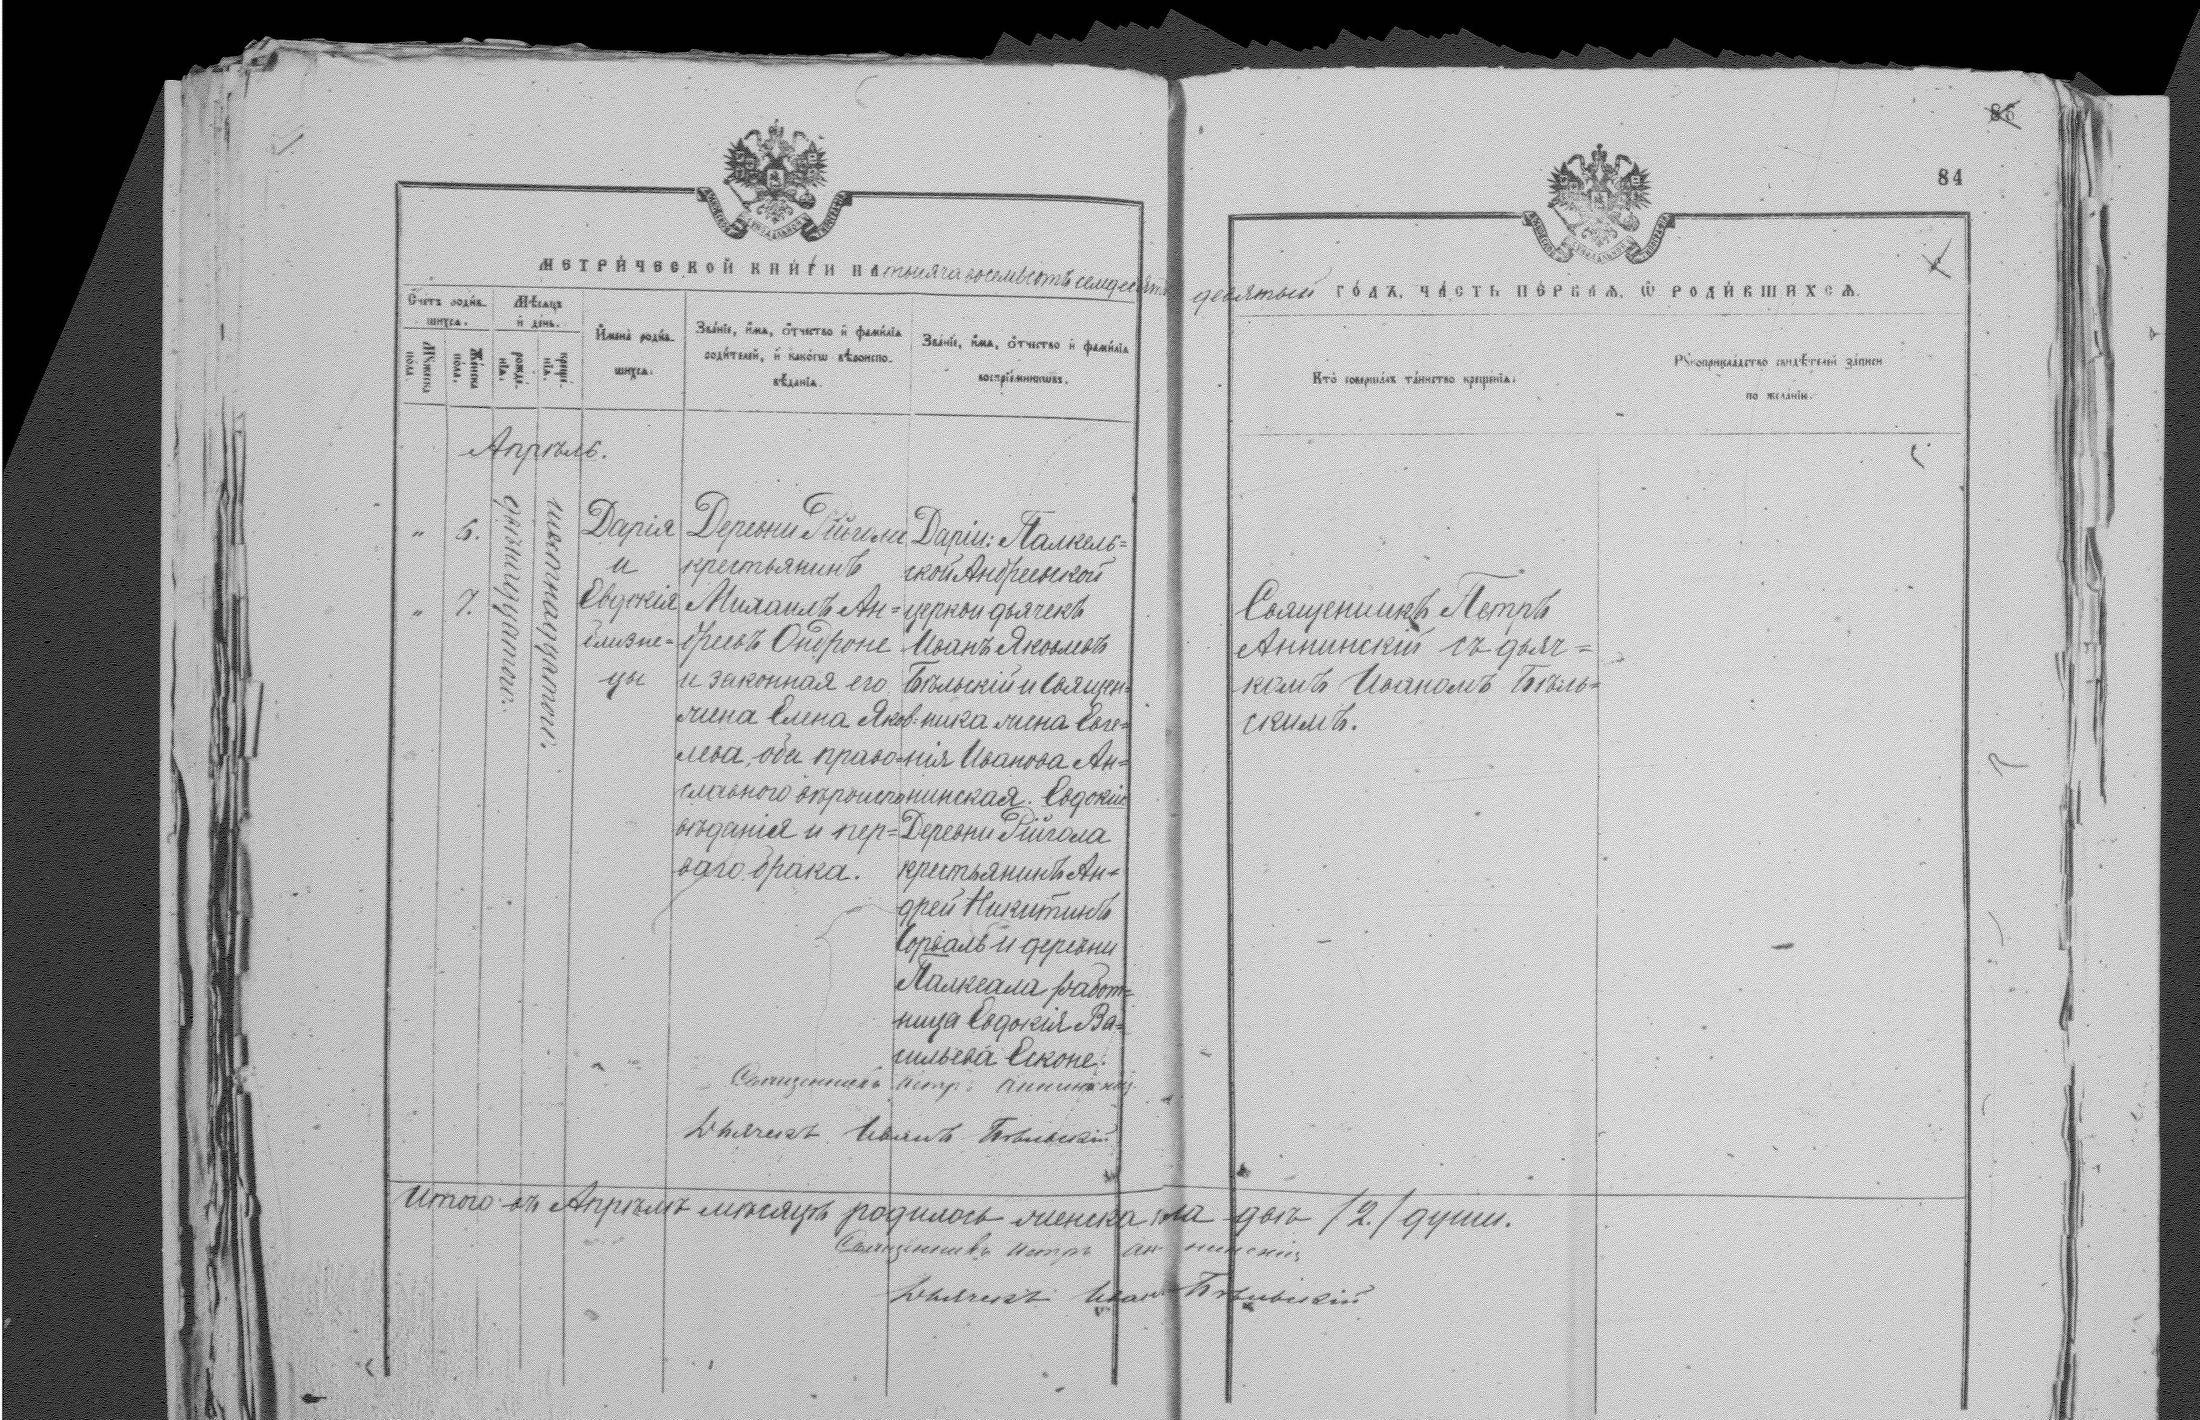 86
84
МЕТРИ́ЧЕСКОЙ КНИ́ГИ НА тысяча восемьсотъ семдесятъ девятый ГО́ДЪ, ЧА́СТЬ ПЕ́РВАЯ, Ѡ РОДИ́ВШИХСѦ.
Счетъ роди́в-
шихся.
Мѣсяцъ
и́ де́нь.
Мꙋжеска
по́ла.
Же́нска
по́ла.
рожде́-
нїѧ.
креще́-
нїѧ.
И҆мена̀ роди́в-
шихся.
Зва́нїе, и҆́мѧ, ѻ҆́тчество и҆ фами́лїѧ
роди́телей, и҆ како́гѡ вѣроиспо-
вѣ́данїѧ.
Зва́нїе, и҆́мѧ, ѻ҆́тчество и҆ фами́лїѧ
воспрїе́мникѡвъ.
Кто̀ соверша́лъ та́инство креще́нїѧ.
Рꙋкоприкла́дство свидѣ́телей за́писи
по жела́нїю.
Апрѣль.
" 6.
" 7.
двѣнадцатого.
шестнадцатого.
Дарія
и
Евдокія
близне=
цы
Деревни Рійгола
крестьянинъ
Михаилъ Ан=
дреевъ Ондроне
и законная его
жена Елена Яков:
лева, оба право=
славного вѣроиспо
вѣданія и пер=
ваго брака.
Даріи: Палкель=
ской Андреевской
церкви дьячекъ
Иванъ Яковлевъ
Бѣльскій и Священ=
ника жена Евге=
нія Иванова Ан=
нинская. Евдокіи
Деревни Рійгола
крестьянинъ Ан=
дрей Никитинъ
и деревни
Палкеала работ=
ница Евдокія Ва=
сильева Есконе.
Священникъ Петръ
Аннинскій съ дьяч=
комъ Иваномъ Бѣль=
скимъ.
Священникъ Петръ Аннинскій
Дьячекъ Иванъ Бѣльскій
Итого въ Апрѣлѣ мѣсяцѣ родилось женска пола двѣ /2./ души.
Священникъ Петръ Аннинскій
Дьячекъ Иванъ Бѣльскій